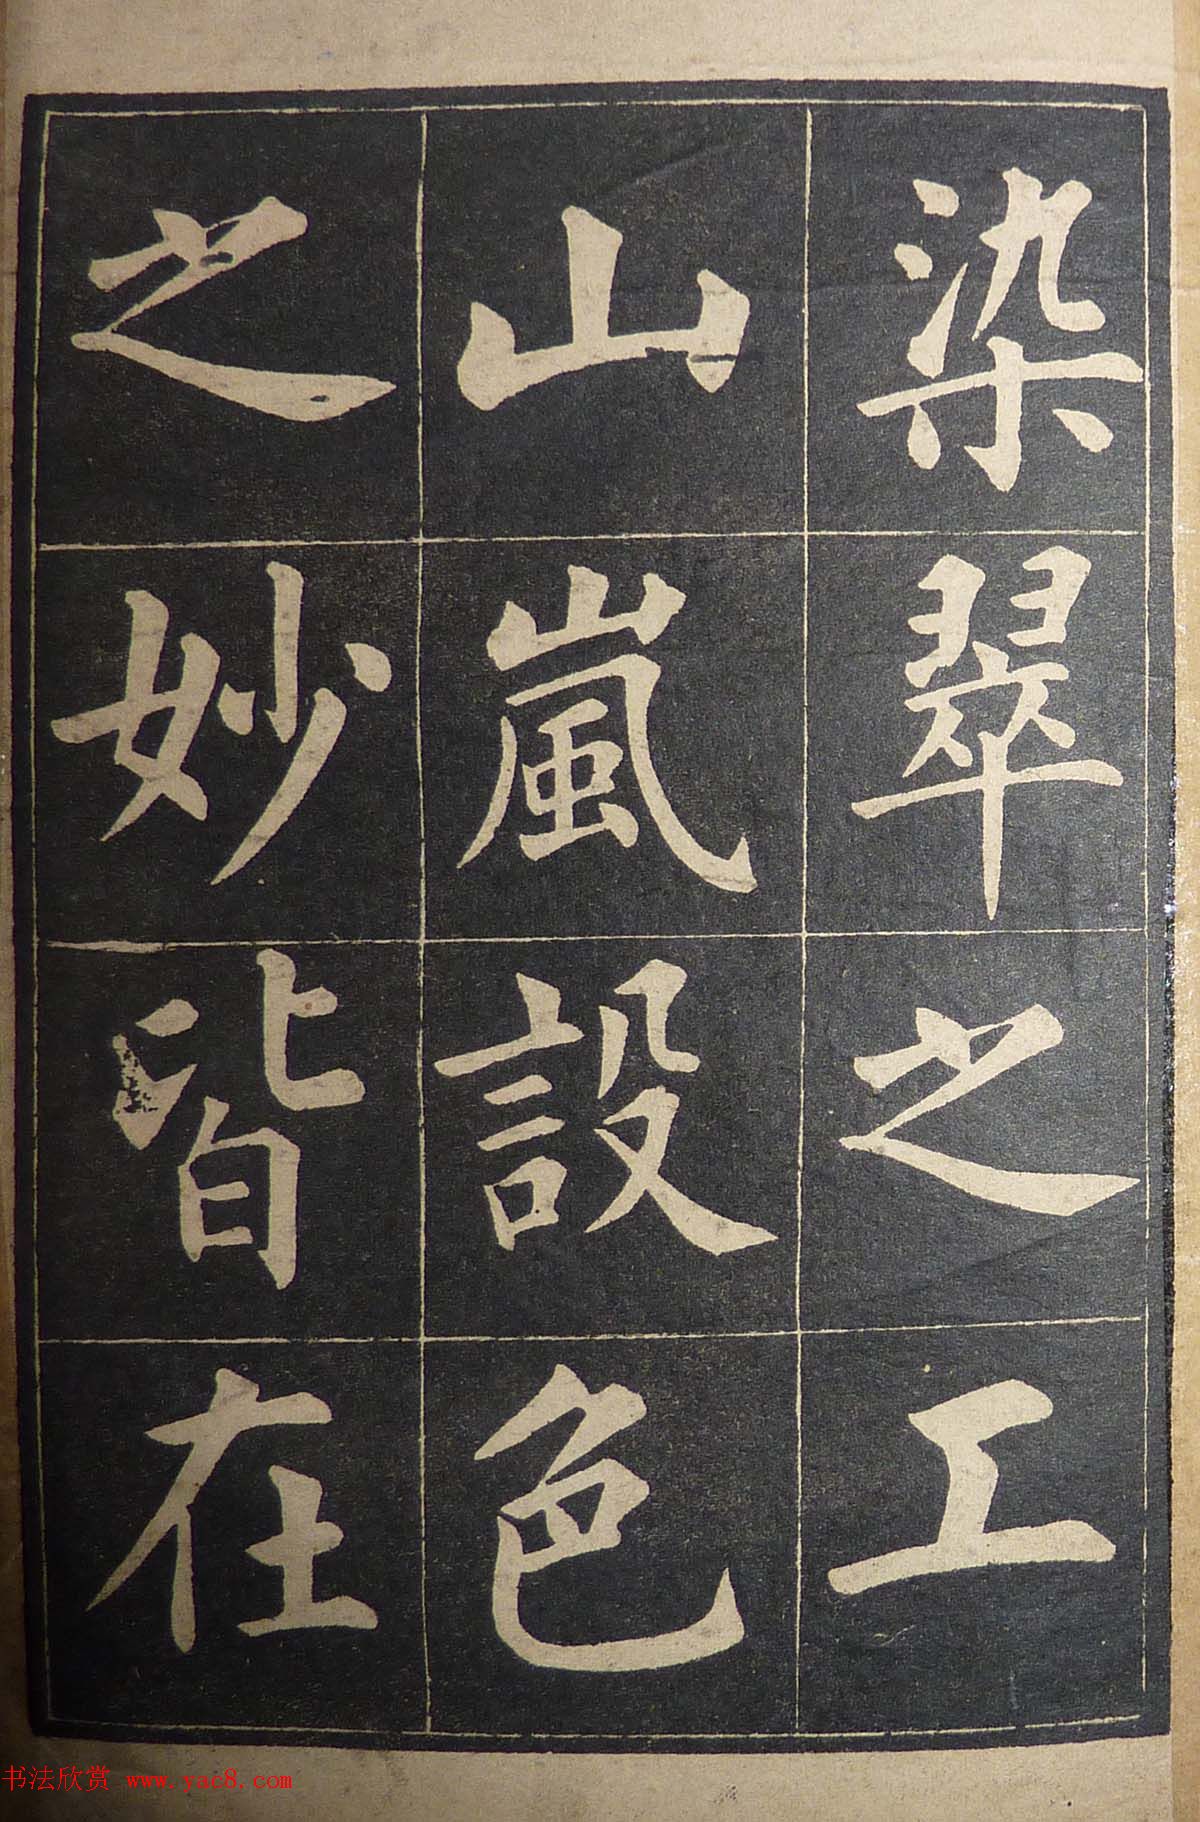 染翠之工
山嵐設色
之妙皆在
书法欣赏 www.yac8.com